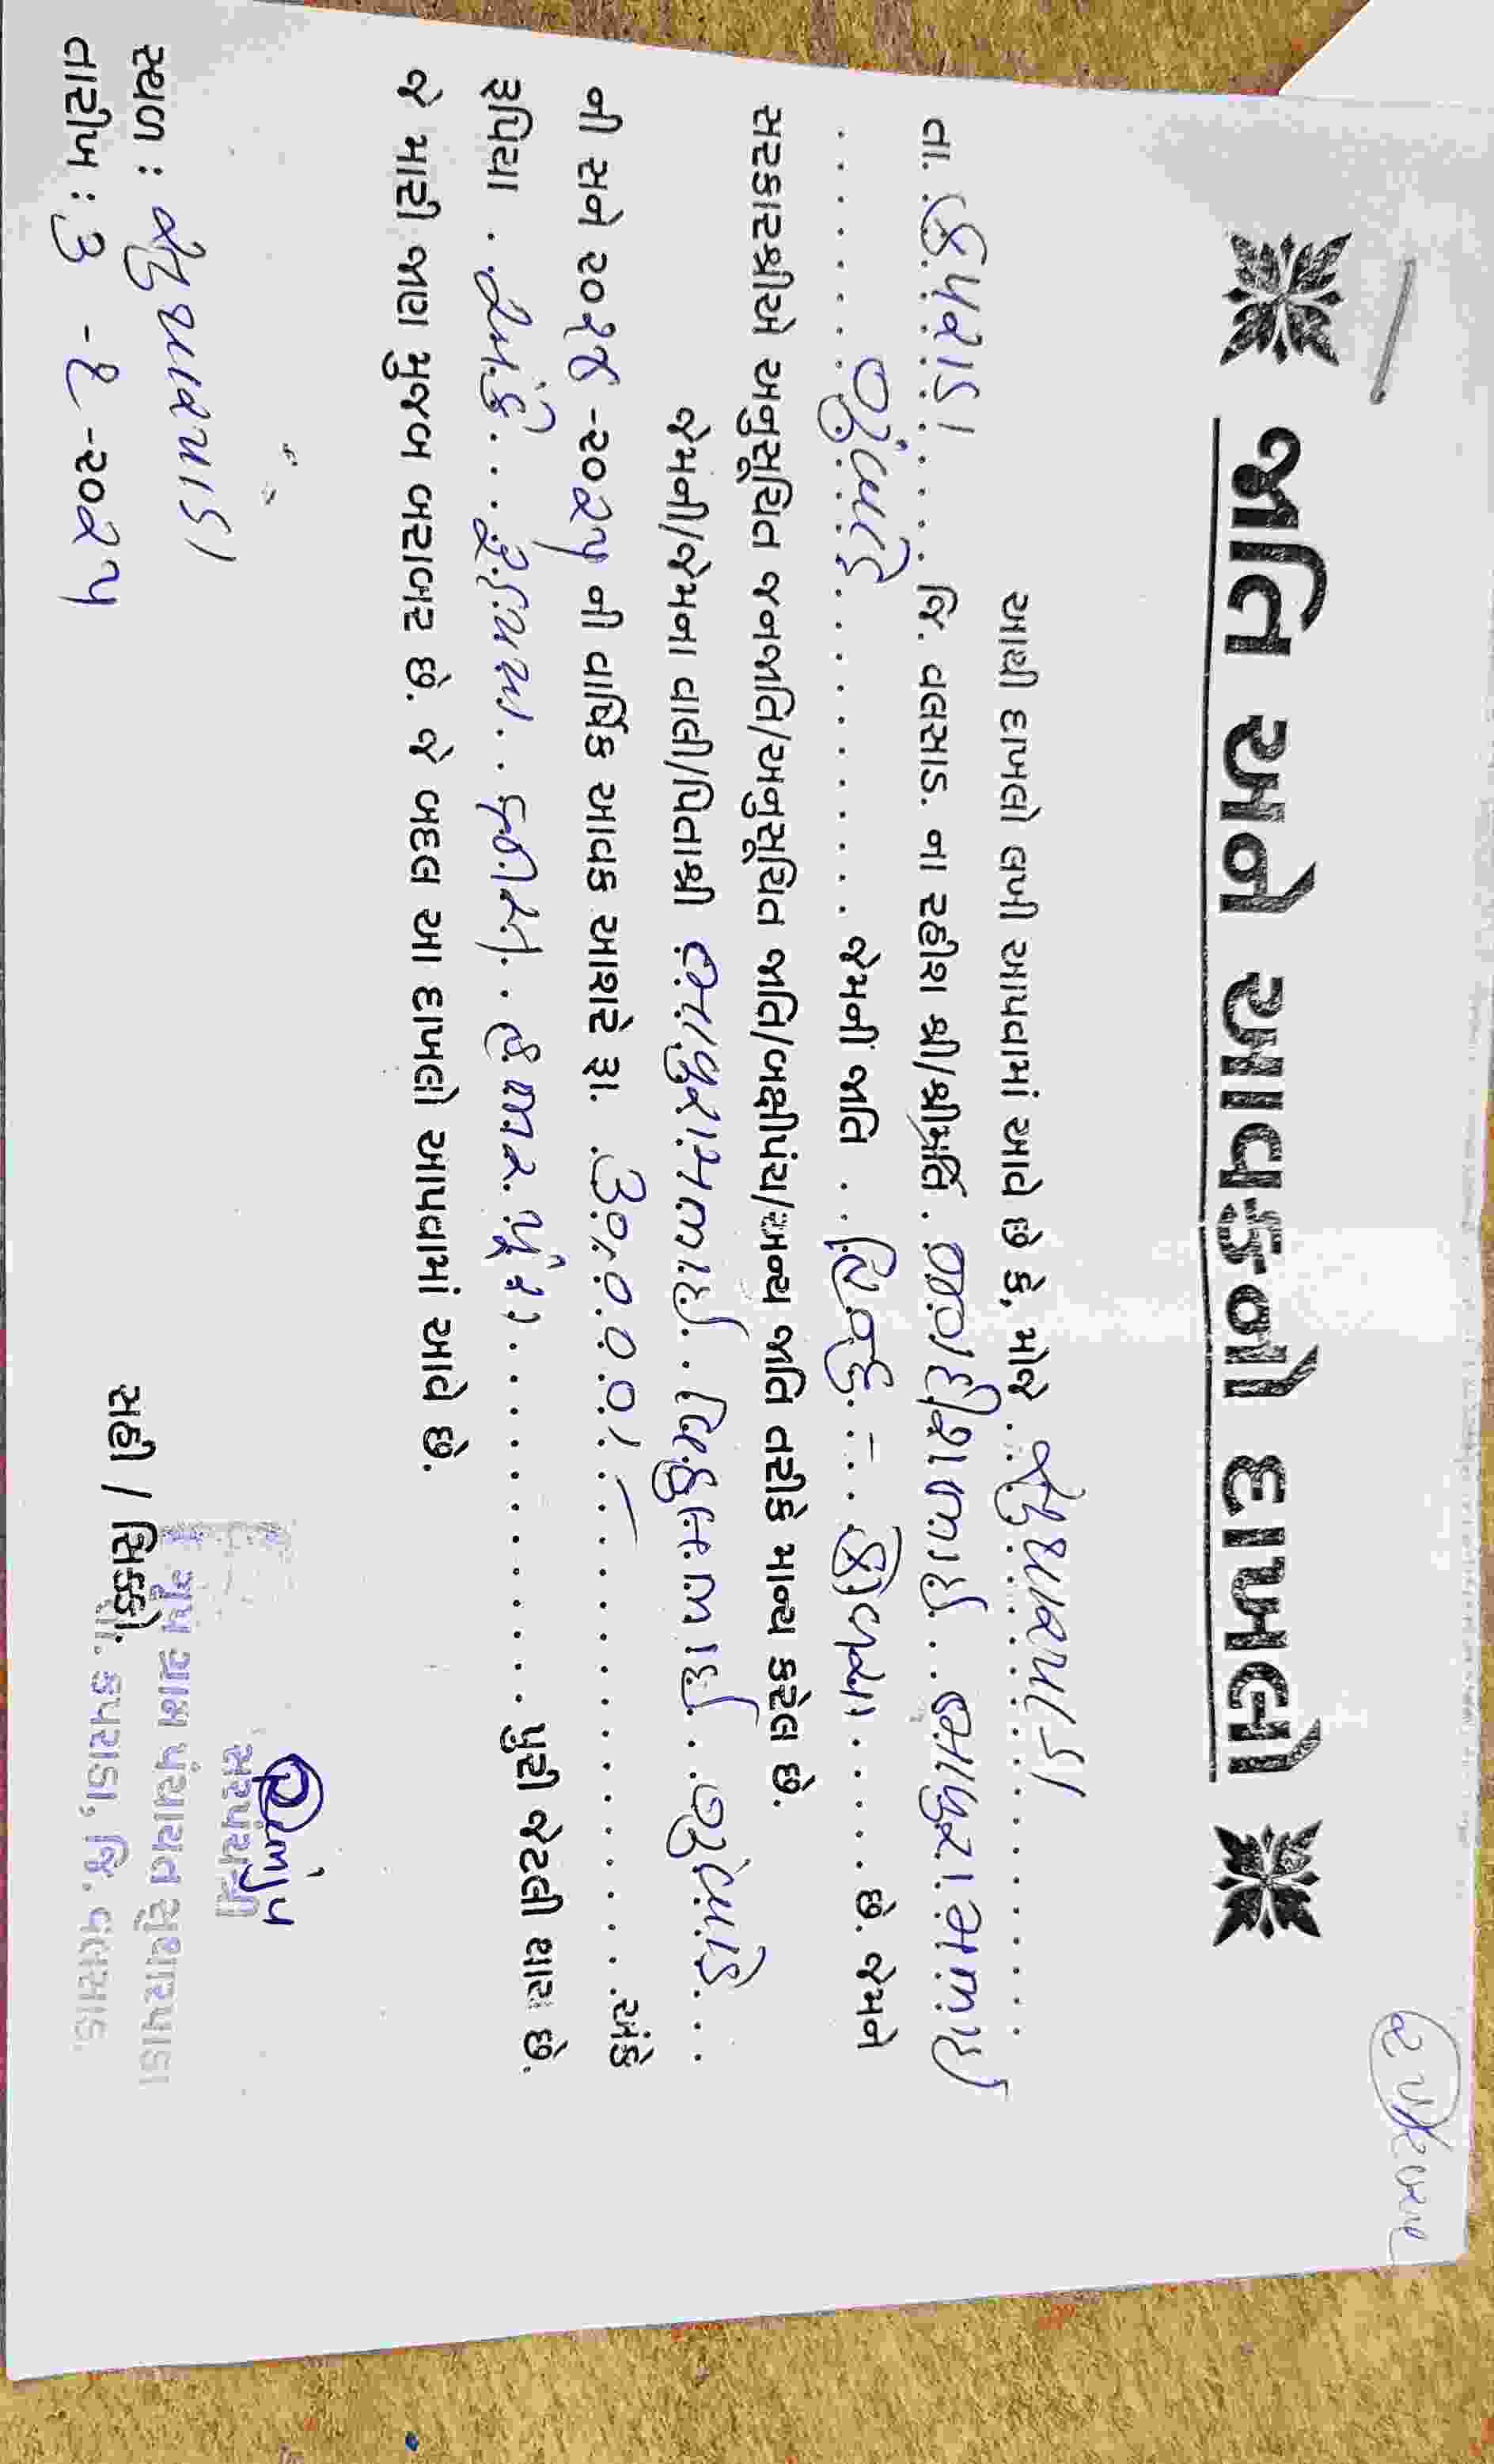 જાતિ અને આવકનો દાખલો
આથી દાખલો લખી આપવામાં આવે છે કે, મોજે. સુથારપાડા
તા. કપરાડા જિ. વલસાડ. ના રહીશ શ્રી/શ્રીમતિ. જગદીશભાઈ બાપુરામભાઈ
જેમની જાતિ હિન્દુ - છે. જેમને
સરકારશ્રીએ અનુસૂચિત જનજાતિ/અનુસૂચિત જાતિ/બક્ષીપંચ/અન્ય જાતિ તરીકે માન્ય કરેલ છે.
જેમની/જેમના વાલી/પિતાશ્રી બાપુરામભાઈ
ની સને ૨૦૨૪ -૨૦૨૫ ની વાર્ષિક આવક આશરે રૂા. ૩૦,૦૦૦/- અંકે
રૂપિયા અંકે રૂપિયા ત્રીસ હજાર પૂરા પુરી જેટલી થાય છે.
જે મારી જાણ મુજબ બરાબર છે. જે બદલ આ દાખલો આપવામાં આવે છે.
સ્થળ : સુથારપાડા
તારીખ : ૩ -૬ -૨૦૨૫
સહી / સિક્કો
સરપંચશ્રી
ગૃપ ગ્રામ પંચાયત સુથારપાડા
તા. કપરાડા, જિ. વલસાડ.